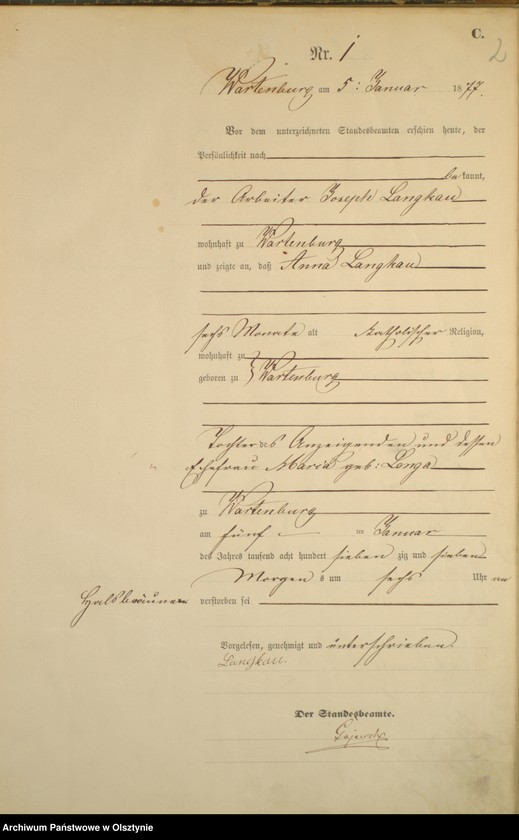 C.
2
Nr. 1
Wartenburg am 5: Januar 1877.
Vor dem unterzeichneten Standesbeamten erschien heute, der
Persönlichkeit nach
bekannt,
der Arbeiter Joseph Langkau
wohnhaft zu Wartenburg
und zeigte an, daß Anna Langkau
sechs Monate alt katholischer Religion,
wohnhaft zu
geboren zu } Wartenburg
Tochter des Anzeigenden und dessen
Ehefrau Maria geb: Langa
zu Wartenburg
am fünf ten Januar
des Jahres tausend acht hundert sieben zig und sieben
Morgens um sechs Uhr an
Halsbräune
verstorben sei
Vorgelesen, genehmigt und unterschrieben.
Langkau.
Der Standesbeamte.
Archiwum Państwowe w Olsztynie